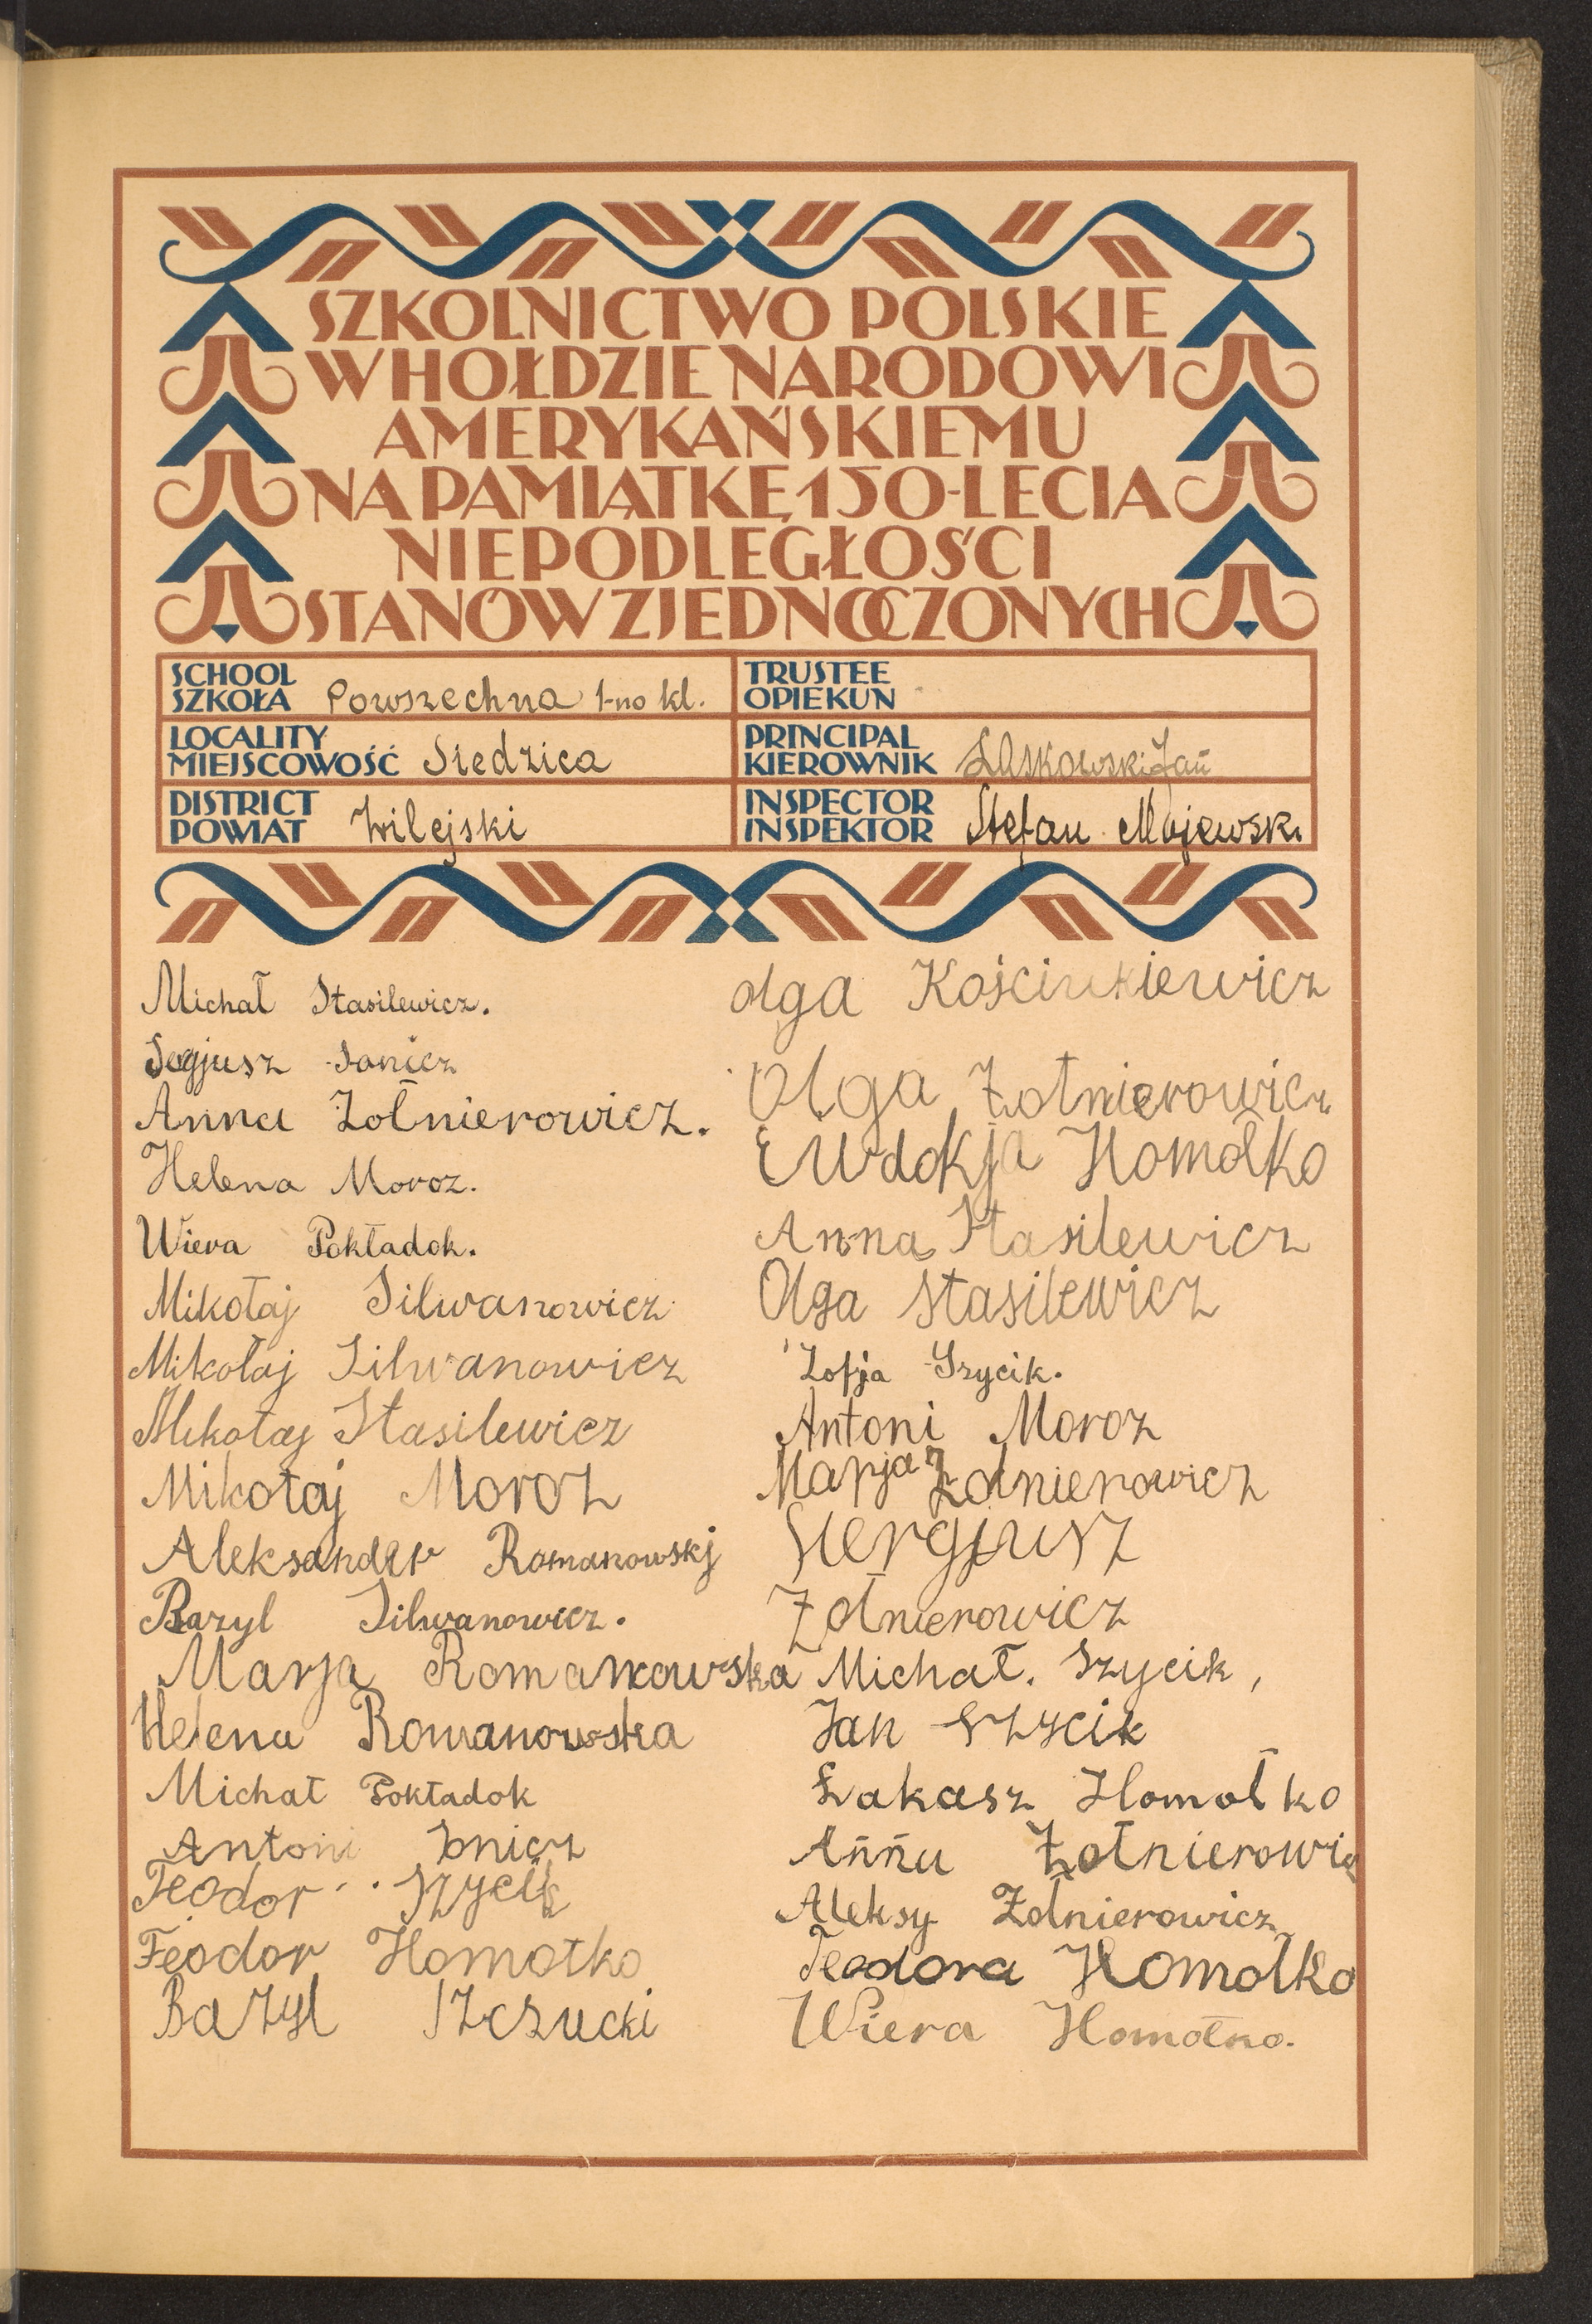 SZKOLNICTWO POLSKIE
W HOŁDZIE NARODOWI
AMERYKAŃSKIEMU
NA PAMIĄTKĘ 150-LECIA
NIEPODLEGŁOŚCI
STANÓW ZJEDNOCZONYCH
SCHOOL
SZKOŁA Powszechna 1-no kl.
TRUSTEE
OPIEKUN
LOCALITY
MIEJSCOWOŚĆ Siedzica
PRINCIPAL
KIEROWNIK Laskowski Jan
DISTRICT
POWIAT Wilejski
INSPECTOR
INSPEKTOR Stefan Majewski
Michał Stasilewicz.
Segjusz Sanicz
Anna Żołnierowicz.
Helena Moroz.
Wiera Pokładok.
Mikołaj Silwanowicz
Mikołaj Silwanowicz
Mikołaj Stasilewicz
Mikołaj Moroz
Aleksander Romanowskj
Bazyl Silwanowicz.
Marja Romanowska
Helena Romanowska
Michał Pokładok
Antoni
Teodor Szycik
Feodor Homołko
Bazyl Szczucki
Olga Kościukiewicz
Olga Żołnierowicz
Ewdokja Homołko
Anna Stasilewicz
Olga Stasilewicz
Zofja Szycik.
Antoni Moroz
Marja Żołnierowicz
Siergjusz
Żołnierowicz
Michał. Szycik,
Jan Szycik
Łakasz Homołko
Anna Żołnierowic
Aleksy Żołnierowicz
Teodora Homołko
Wiera Homołko.